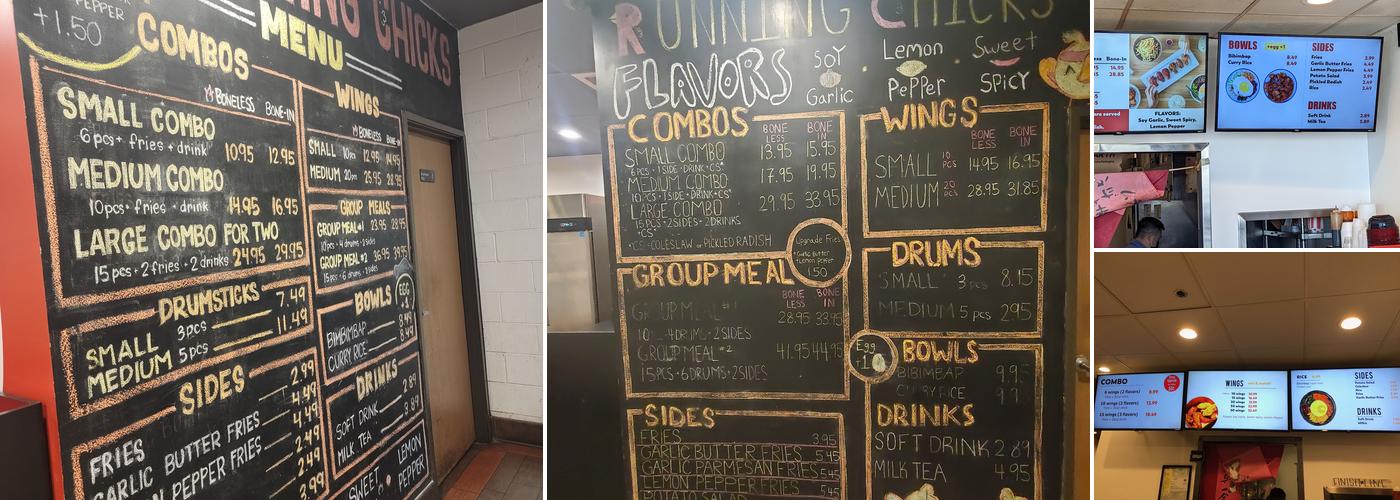 PEPPER
+1.50
ING CHICKS
MENU
COMBOS
BONELESS BONE-IN
SMALL COMBO
6pcs + fries + drink 10.95 12.95
MEDIUM COMBO
10pcs + fries + drink 14.95 16.95
LARGE COMBO FOR TWO
15 pcs + 2 fries + 2 drinks 24.95 29.95
DRUMSTICKS
SMALL 3pcs 7.49
MEDIUM 5pcs 11.49
SIDES
FRIES 2.99
GARLIC BUTTER FRIES 4.49
PEPPER FRIES 4.49
WINGS
BONELESS BONE-IN
SMALL 10pcs 12.95 14.95
MEDIUM 20pcs 25.95 28.95
GROUP MEALS
GROUP MEAL #1 23.95 28.95
10pcs + 4 drums + 2 sides
GROUP MEAL #2 36.95 39.95
15pcs + 6 drums + 2 sides
BOWLS
EGG
BIBIMBAP 8.49
CURRY RICE 8.49
DRINKS
SOFT DRINK 2.89
MILK TEA 3.89
SWEET
LEMON
PEPPER
RUNNING CHICKS
FLAVORS
SOY
Garlic
Lemon
Pepper
Sweet
SPICY
COMBOS
BONE LESS BONE IN
SMALL COMBO 13.95 15.95
6PCS + 1SIDE + DRINK + CS*
MEDIUM COMBO 17.95 19.95
10PCS + 1SIDE + DRINK + CS*
LARGE COMBO 29.95 33.95
15PCS + 2SIDES + 2DRINKS
+CS*
*CS = COLESLAW or PICKLED RADISH
Upgrade Fries
Garlic Butter
Lemon Pepper
1.50
GROUP MEAL
BONE LESS BONE IN
GROUP MEAL #1 28.95 33.95
10PCS + 4DRUMS + 2SIDES
GROUP MEAL #2 41.95 44.95
15PCS + 6DRUMS + 2SIDES
SIDES
FRIES 3.95
GARLIC BUTTER FRIES 5.45
GARLIC PARMESAN FRIES 5.45
LEMON PEPPER FRIES 5.45
WINGS
BONE LESS BONE IN
SMALL 10 PCS 14.95 16.95
MEDIUM 20 PCS 28.95 31.85
DRUMS
SMALL 3 pcs 8.15
MEDIUM 5 pcs
Egg
BOWLS
BIBIMBAP
CURRY RICE
DRINKS
SOFT DRINK 2.89
MILK TEA 4.95
Bone-In
14.95
28.85
FLAVORS:
Soy Garlic, Sweet Spicy,
Lemon Pepper
BOWLS +egg +1
Bibimbap 8.49
Curry Rice 8.49
SIDES
Fries 2.99
Garlic Butter Fries 4.49
Lemon Pepper Fries 4.49
Potato Salad 3.99
Pickled Radish 2.49
Rice 2.49
DRINKS
Soft Drink 2.89
Milk Tea 3.89
COMBO
6 wings (2 flavors) 8.99
10 wings (2 flavors) 13.99
WINGS
RICE
SIDES
DRINKS
FINISH LINE